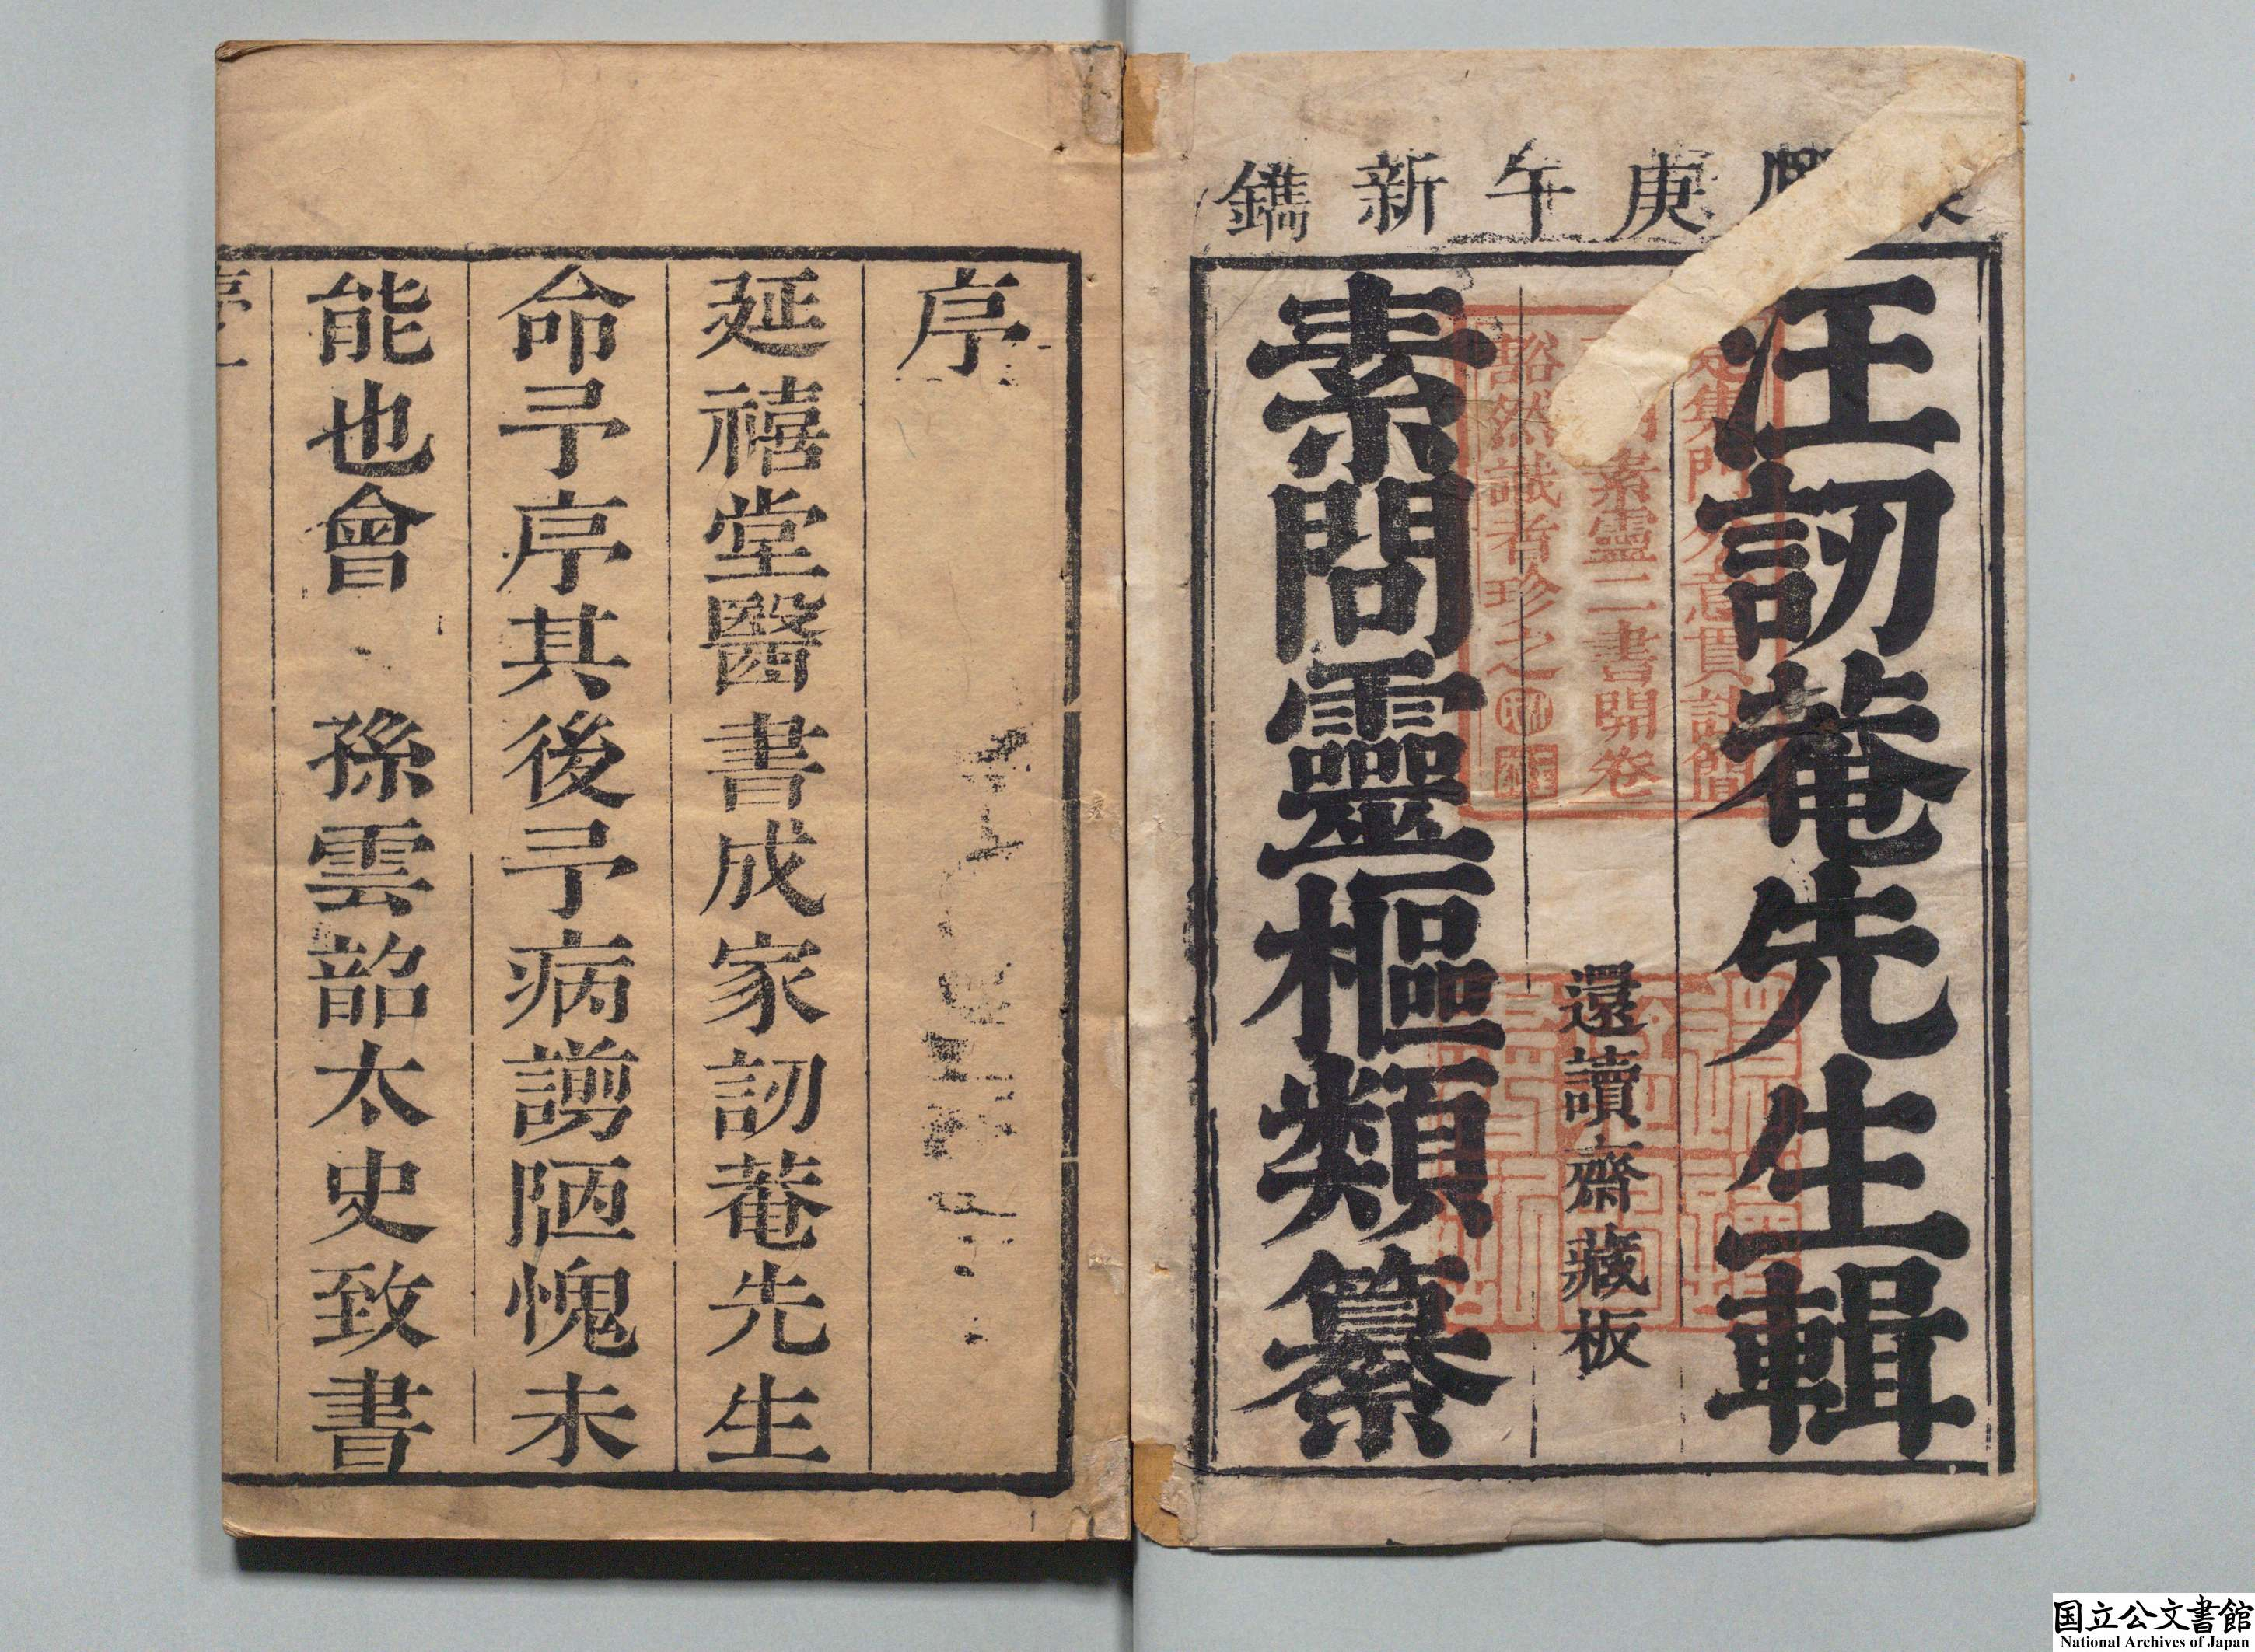 庚午新鐫
汪訒菴先生輯
素靈二書開卷
豁然識者珍之
還讀齋藏板
素問靈樞類纂
序
延禧堂醫書成家訒菴先生
命予序其後予病謭陋愧未
能也會 孫雲韶太史致書
国立公文書館
National Archives of Japan